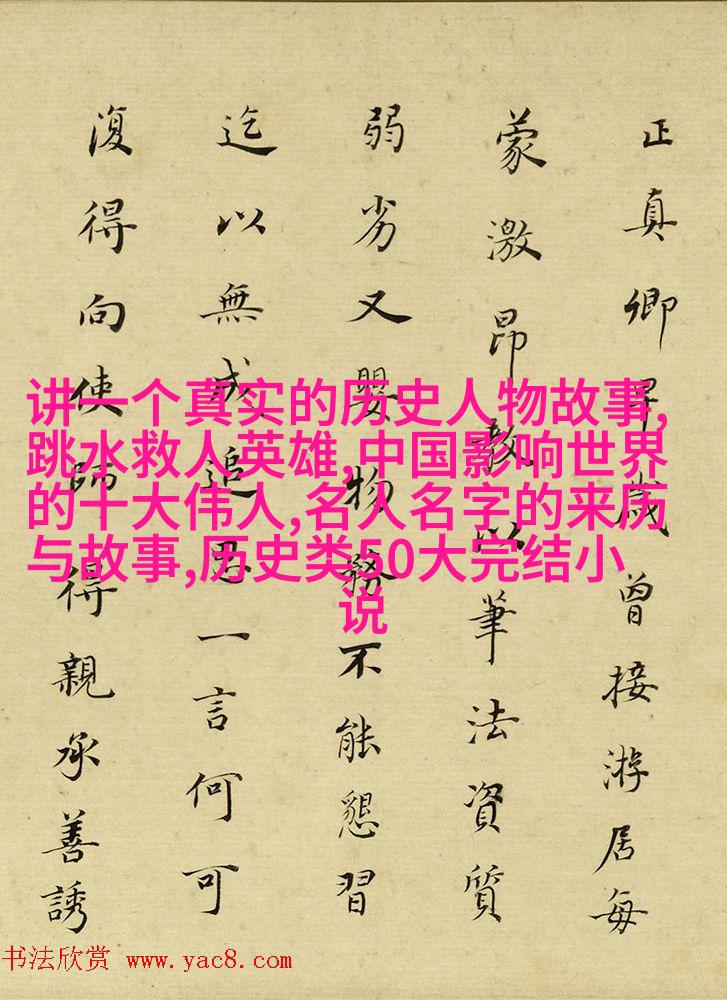 正真卿早歲曾接游居每
蒙激昂教以筆法資質
弱劣又嬰物務不能懇習
迄以無成追思一言何可
復得向使師得親承善誘
讲一个真实的历史人物故事,
跳水救人英雄,中国影响世界
的十大伟人,名人名字的来历
与故事,历史类50大完结小
说
书法欣赏 www.yac8.com